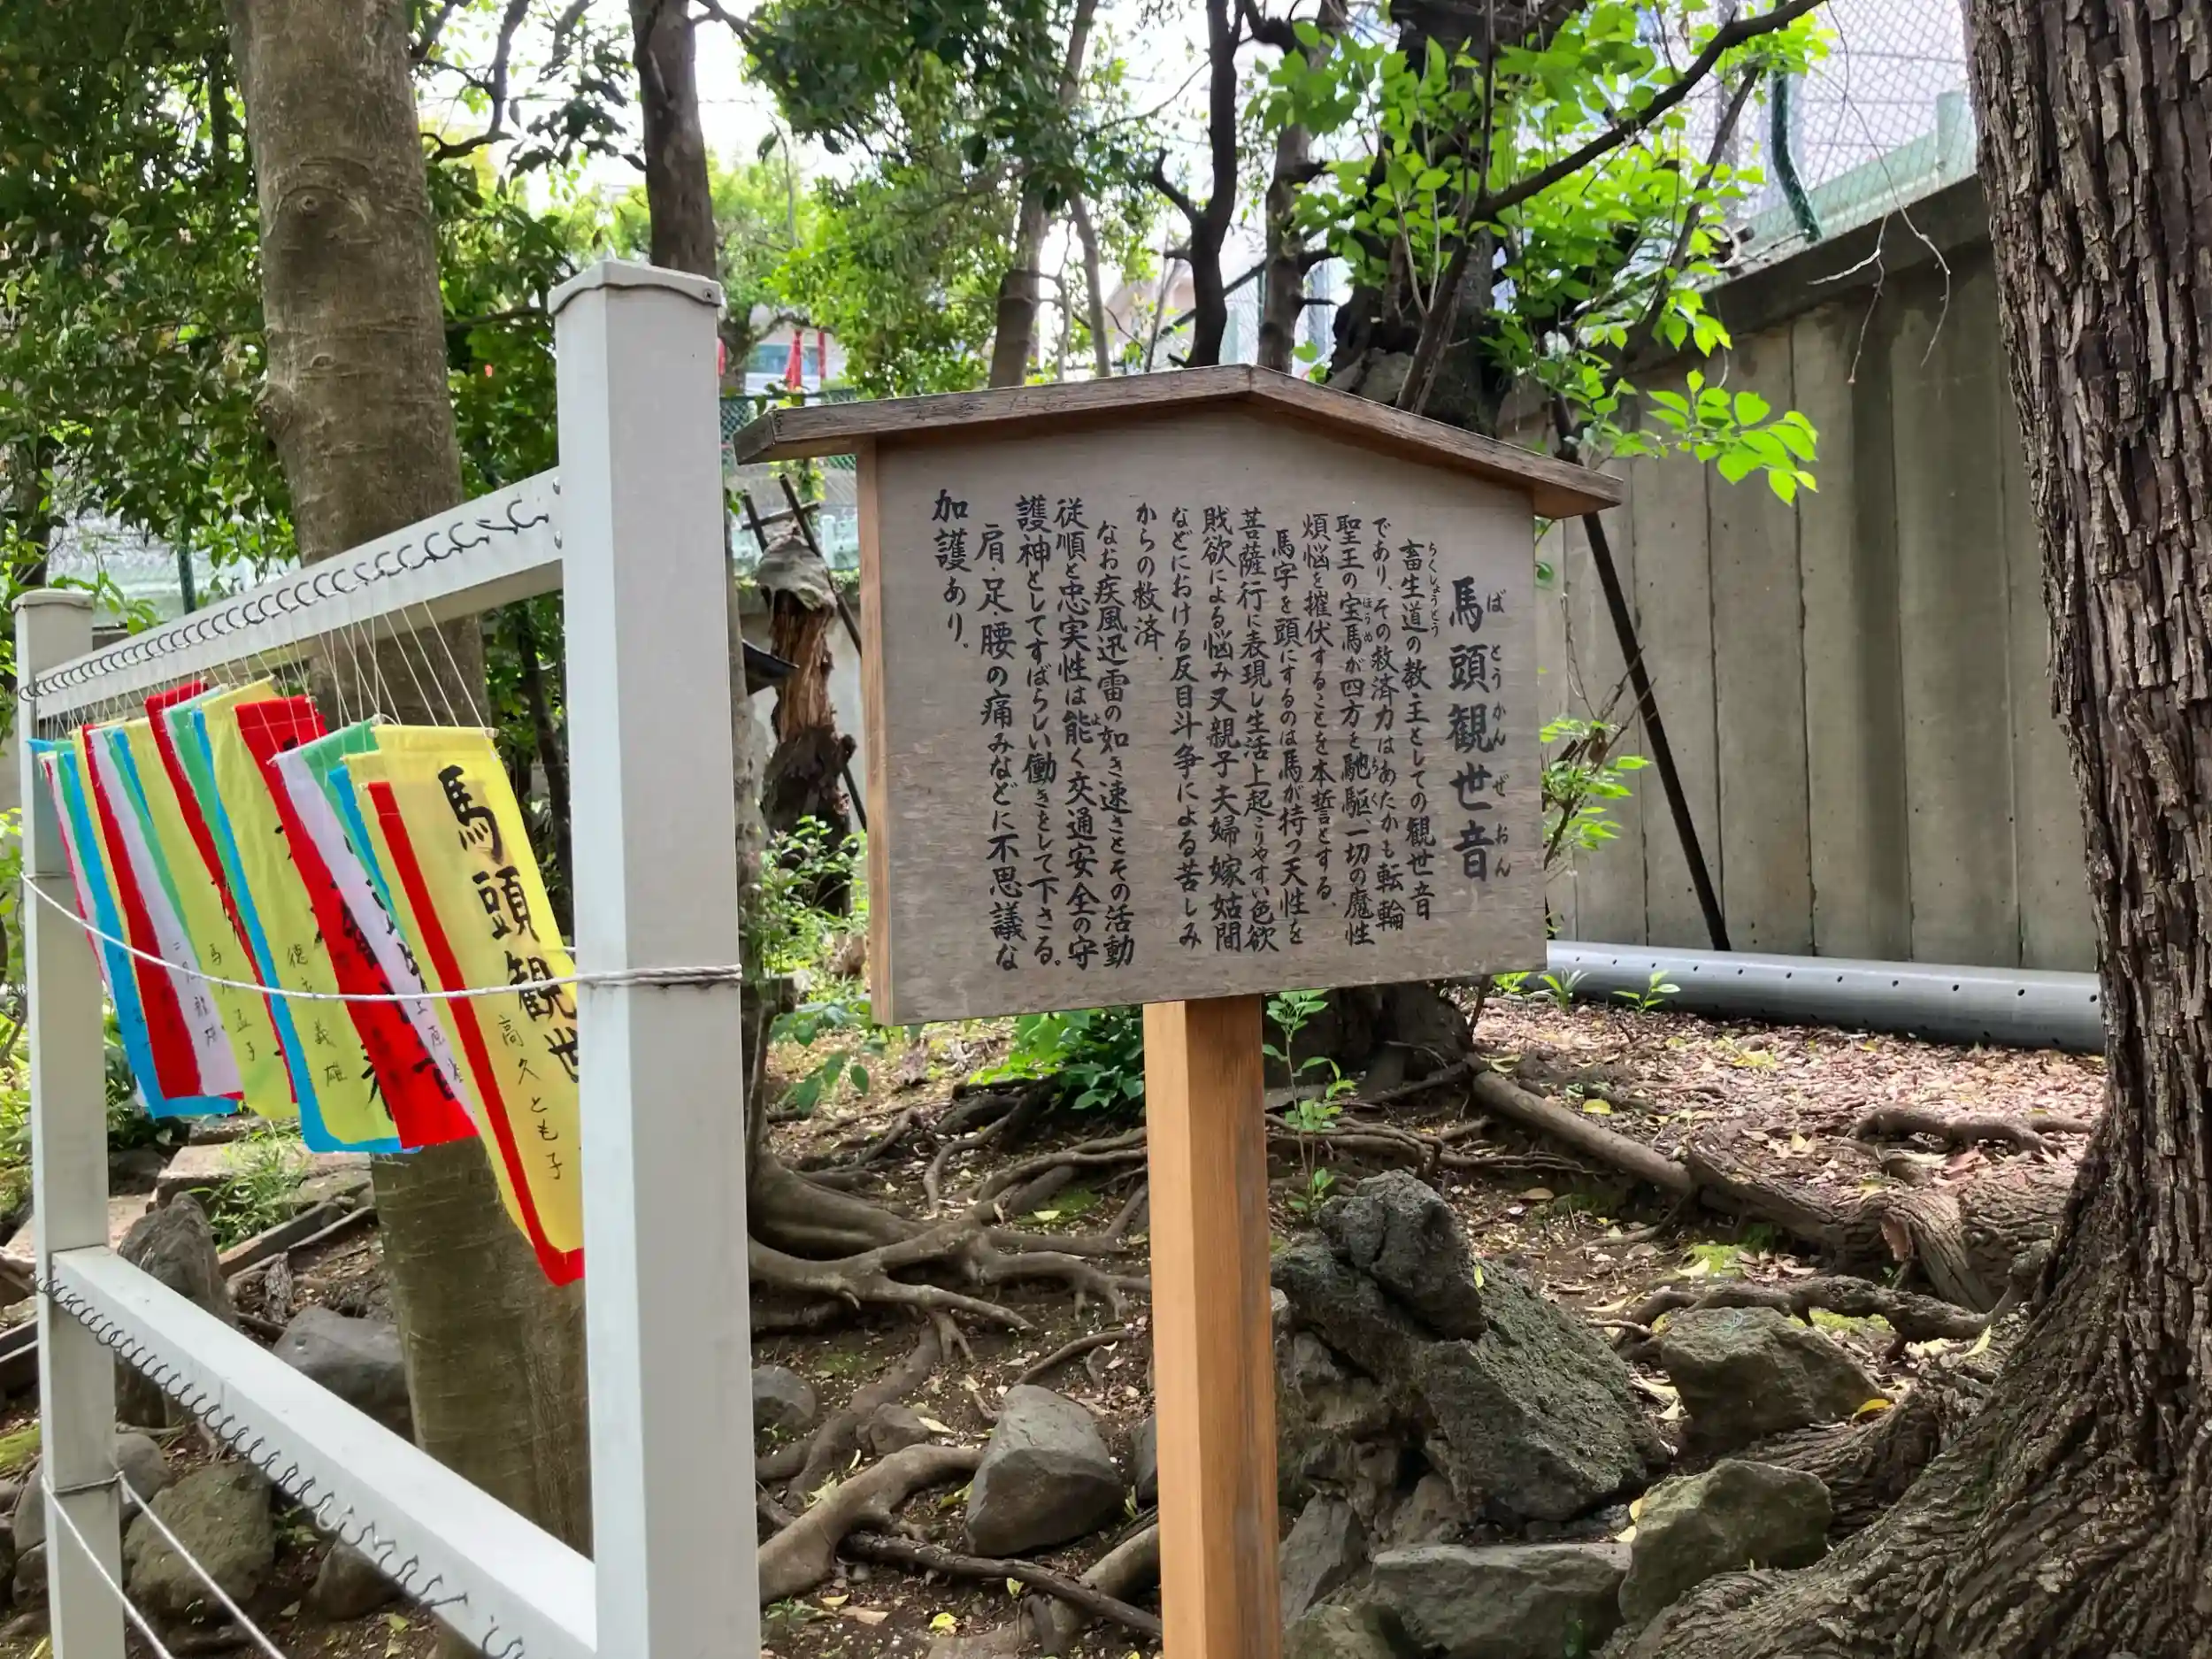 馬頭観世音
ばとうかんぜおん
畜生道の教主としての観世音
ちくしょうどう
であり、その救済力はあたかも転輪
聖王の宝馬が四方を馳駆一切の魔性
ほうめ
ちく
煩悩を摧伏することを本誓とする.
馬字を頭にするのは馬が持つ天性を
菩薩行に表現し生活上起こりやすい色欲
戝欲による悩み又親子夫婦嫁姑間
などにおける反目斗争による苦しみ
からの救済.
なお疾風迅雷の如き速さとその活動
従順と忠実性は能く交通安全の守
よ
護神としてすばらしい働きをして下さる。
肩・足・腰の痛みなどに不思議な
加護あり.
馬頭観世
高久とも子
德
義雄
馬
孟子